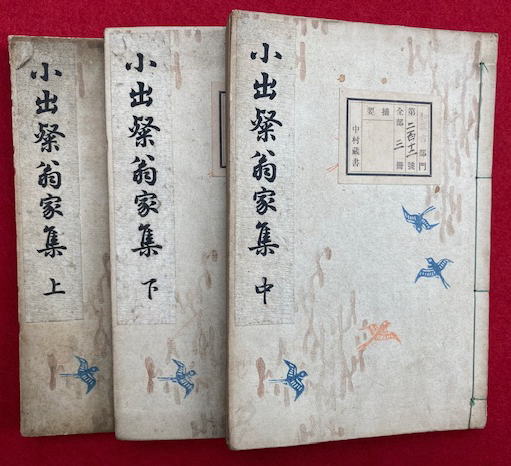 小出粲翁家集 上
小出粲翁家集 下
小出粲翁家集 中
部門
第二百十一號
全部三冊
摘要
中村蔵書